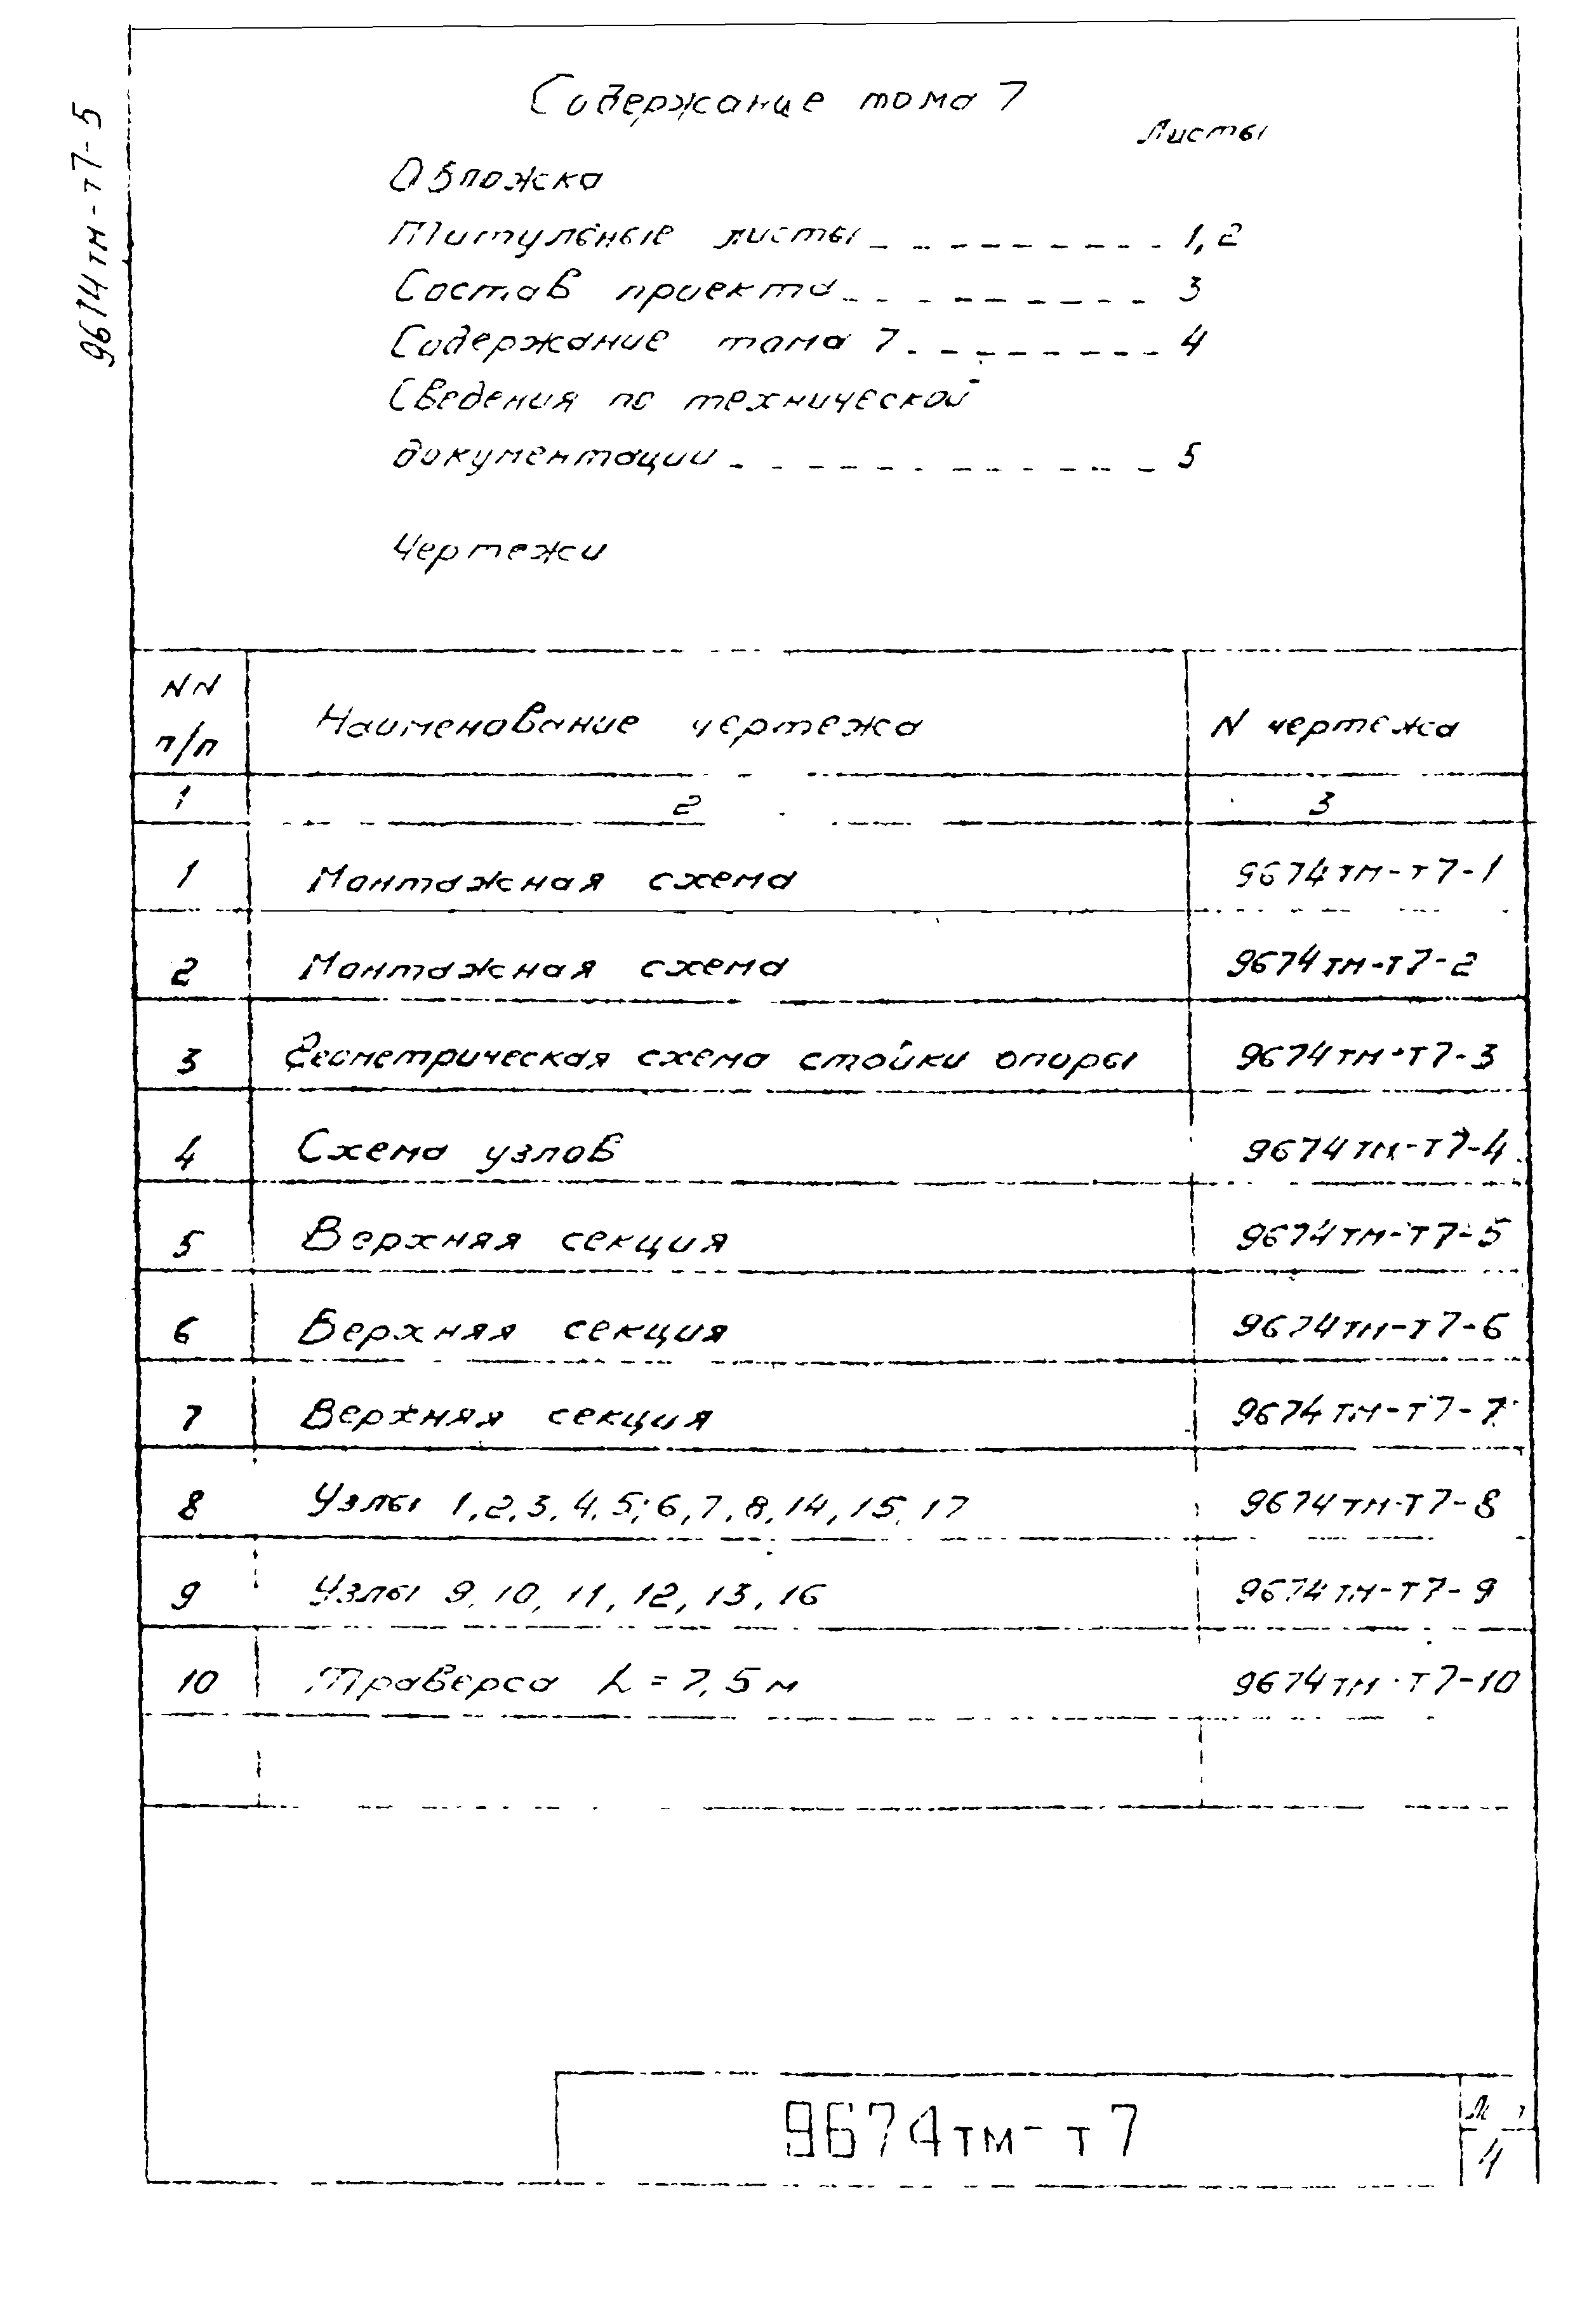 9674тм-т7-5
Содержание тома 7
Листы
Обложка
Титульные листы 1, 2
Состав проекта 3
Содержание тома 7 4
Сведения по технической
документации 5
Чертежи
NN п/п Наименование чертежа N чертежа
1 2 3
1 Монтажная схема 9674тм-т7-1
2 Монтажная схема 9674тм-т7-2
3 Геометрическая схема стойки опоры 9674тм-т7-3
4 Схема узлов 9674тм-т7-4
5 Верхняя секция 9674тм-т7-5
6 Верхняя секция 9674тм-т7-6
7 Верхняя секция 9674тм-т7-7
8 Узлы 1,2,3,4,5;6,7,8,14,15,17 9674тм-т7-8
9 Узлы 9,10,11,12,13,16 9674тм-т7-9
10 Траверса L=7,5м 9674тм-т7-10
9674тм-т7
4